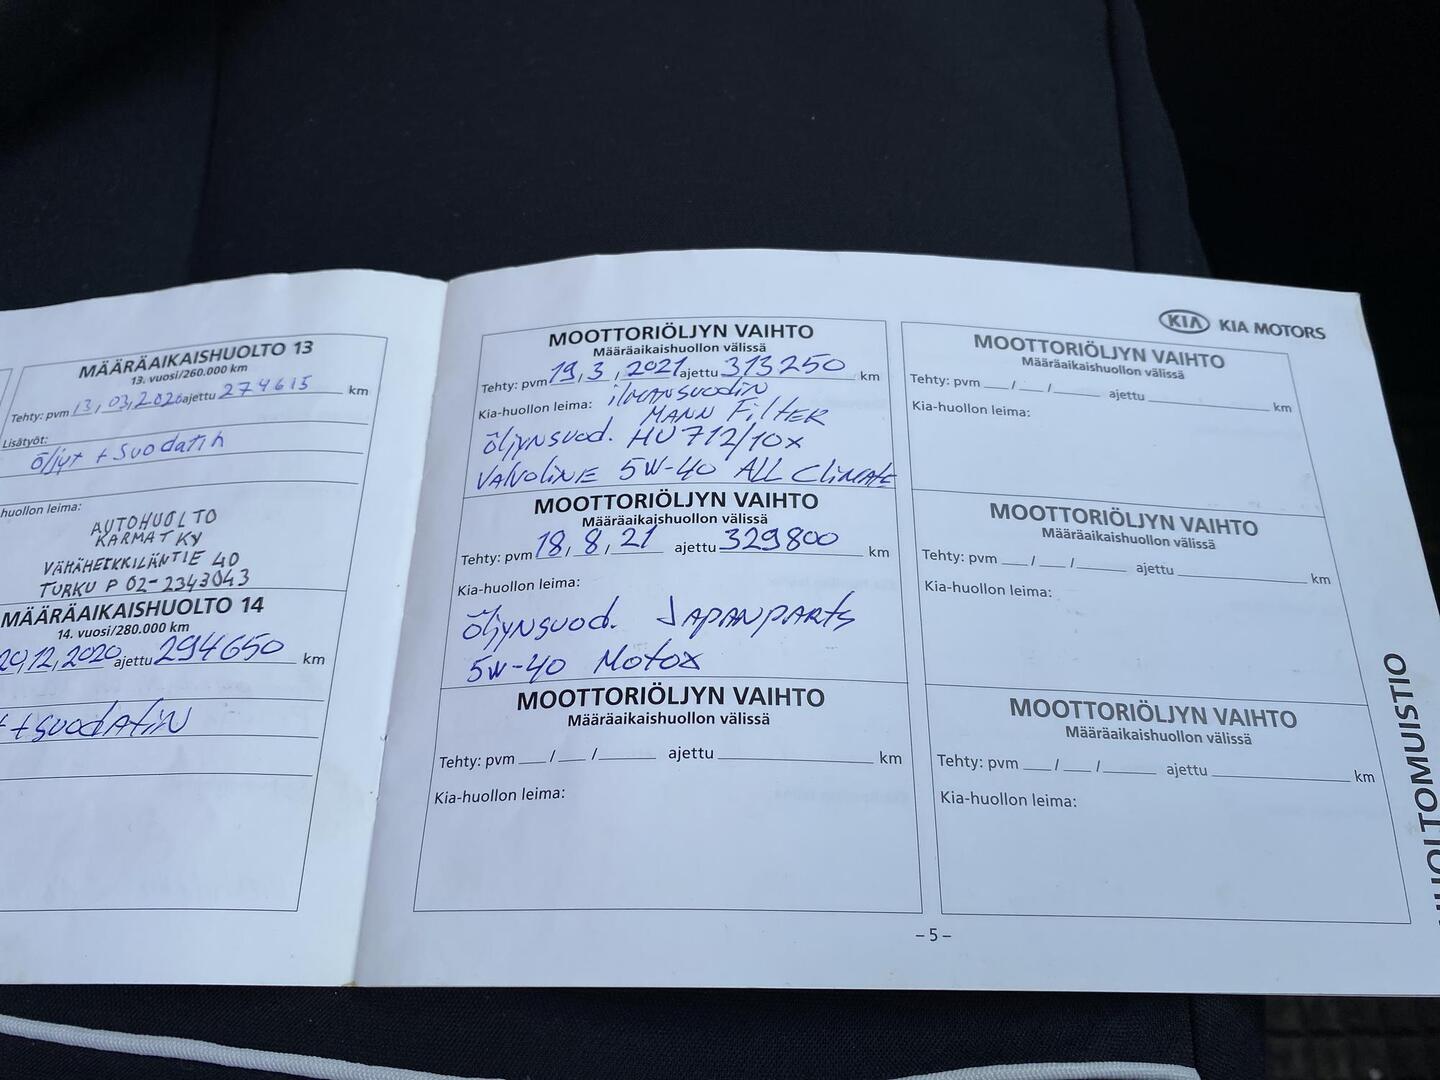 MÄÄRÄAIKAISHUOLTO 13
13. vuosi/260.000 km
Tehty: pvm 13, 03, 2020 ajettu 274615 km
Lisätyöt:
öljyt + suodatin
huollon leima:
AUTOHUOLTO
KARMAT KY
VÄHÄHEIKKILÄNTIE 40
TURKU P 02-2343043
MÄÄRÄAIKAISHUOLTO 14
14. vuosi/280.000 km
12, 2020 ajettu 294650 km
+ suodatin
MOOTTORIÖLJYN VAIHTO
Määräaikaishuollon välissä
Tehty: pvm 19, 3, 2021 ajettu 313250 km
Kia-huollon leima: ilmansuodin
MANN FILTER
öljynsuod. HU 712/10x
VALVOLINE 5W-40 ALL CLIMATE
MOOTTORIÖLJYN VAIHTO
Määräaikaishuollon välissä
Tehty: pvm 18, 8, 21 ajettu 329800 km
Kia-huollon leima:
öljynsuod. JAPANPARTS
5W-40 Motox
MOOTTORIÖLJYN VAIHTO
Määräaikaishuollon välissä
Tehty: pvm ___/___/______ ajettu ______ km
Kia-huollon leima:
KIA KIA MOTORS
MOOTTORIÖLJYN VAIHTO
Määräaikaishuollon välissä
Tehty: pvm ___/___/______ ajettu ______ km
Kia-huollon leima:
MOOTTORIÖLJYN VAIHTO
Määräaikaishuollon välissä
Tehty: pvm ___/___/______ ajettu ______ km
Kia-huollon leima:
MOOTTORIÖLJYN VAIHTO
Määräaikaishuollon välissä
Tehty: pvm ___/___/______ ajettu ______ km
Kia-huollon leima:
HUOLTOMUISTIO
– 5 –